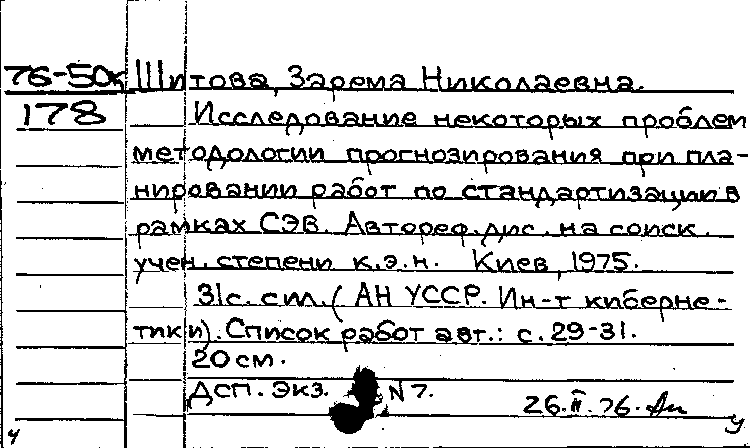 76-50к Шитова, Зарема Николаевна.
178 Исследование некоторых проблем
методологии прогнозирования при пла-
нировании работ по стандартизации в
рамках СЭВ. Автореф. дис. на соиск.
учен. степени к.э.н. Киев, 1975.
31с. с ил. (АН УССР. Ин-т киберне-
тики). Список работ авт.: с. 29-31.
20 см.
ДСП. Экз. N 7.
26.II.76.
ч у